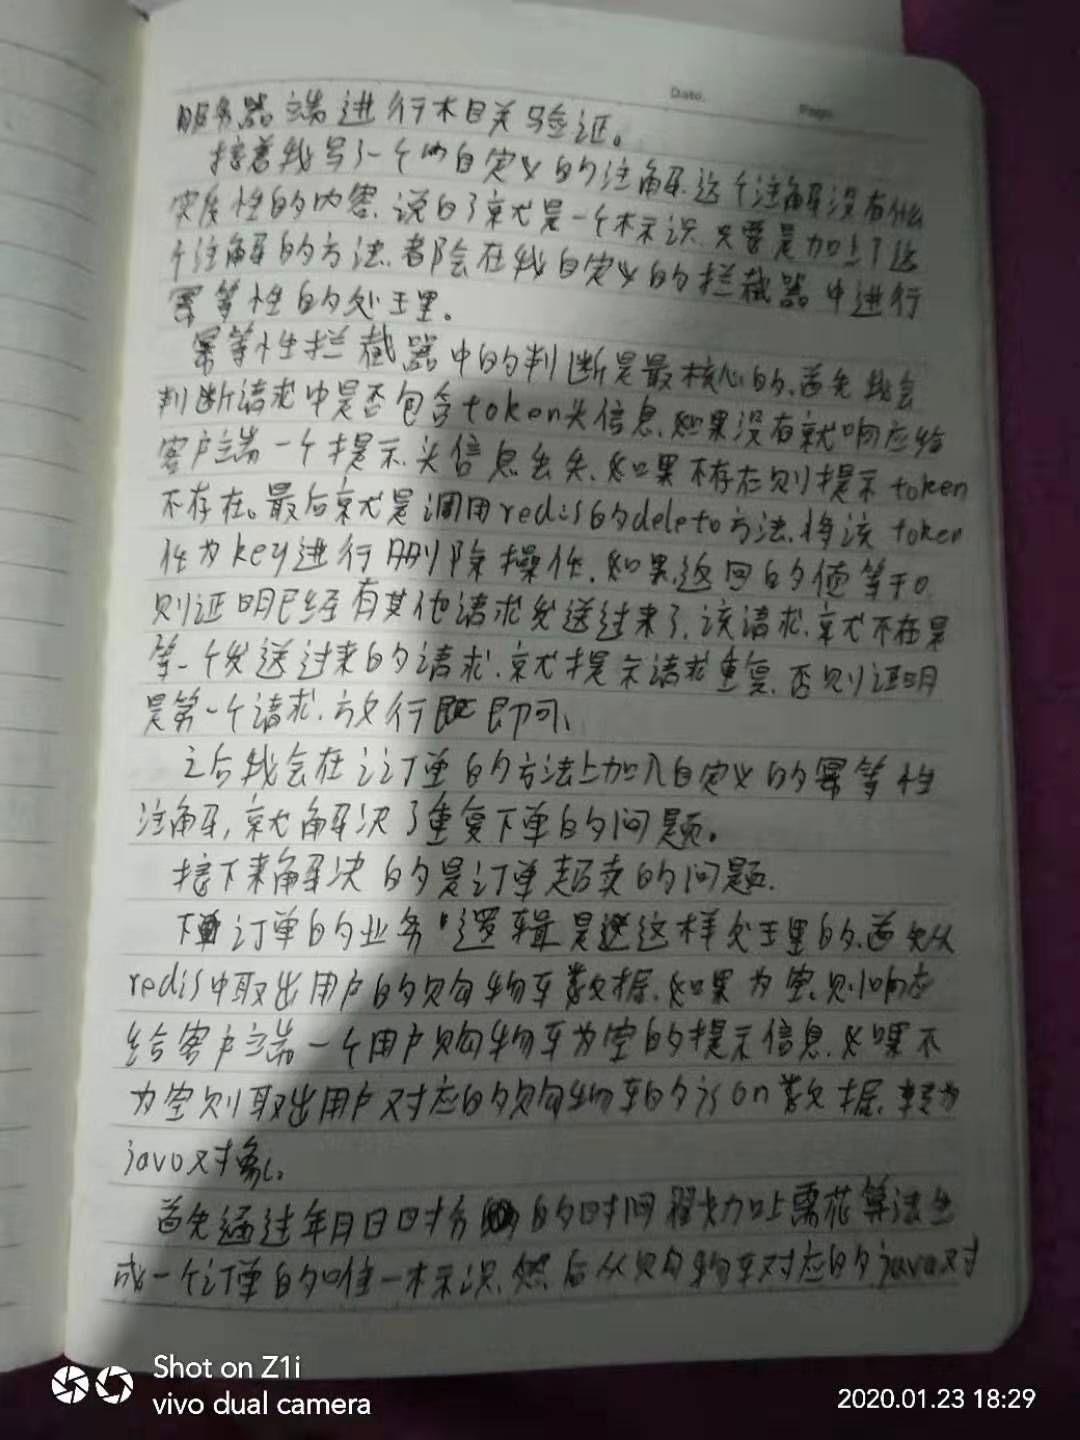 Date.
Page.
服务器端进行相关验证。
接着我写了一个自定义的注解.这个注解没有什么
实质性的内容.说白了就是一个标识.只要是加上了这
个注解的方法.都会在我自定义的拦截器中进行
幂等性的处理。
幂等性拦截器中的判断是最核心的.首先我会
判断请求中是否包含token头信息.如果没有就响应给
客户端一个提示.头信息丢失.如果不存在则提示token
不存在。最后就是调用redis的delete方法.将该token
作为key进行删除操作.如果返回的值等于0
则证明已经有其他请求发送过来了.该请求.就不在是
第一个发送过来的请求.就提示请求重复.否则证明
是第一个请求.放行即可.
之后我会在订单的方法上加入自定义的幂等性
注解,就解决了重复下单的问题。
接下来解决的是订单超卖的问题.
下订单的业务逻辑是这样处理的.首先从
redis中取出用户的购物车数据.如果为空.则响应
给客户端一个用户购物车为空的提示信息.如果不
为空则取出用户对应的购物车的json数据.转为
java对象.
首先通过年月日时分的时间戳加上雪花算法生
成一个订单的唯一标识.然后从购物车对应的java对
Shot on Z1i
vivo dual camera
2020.01.23 18:29